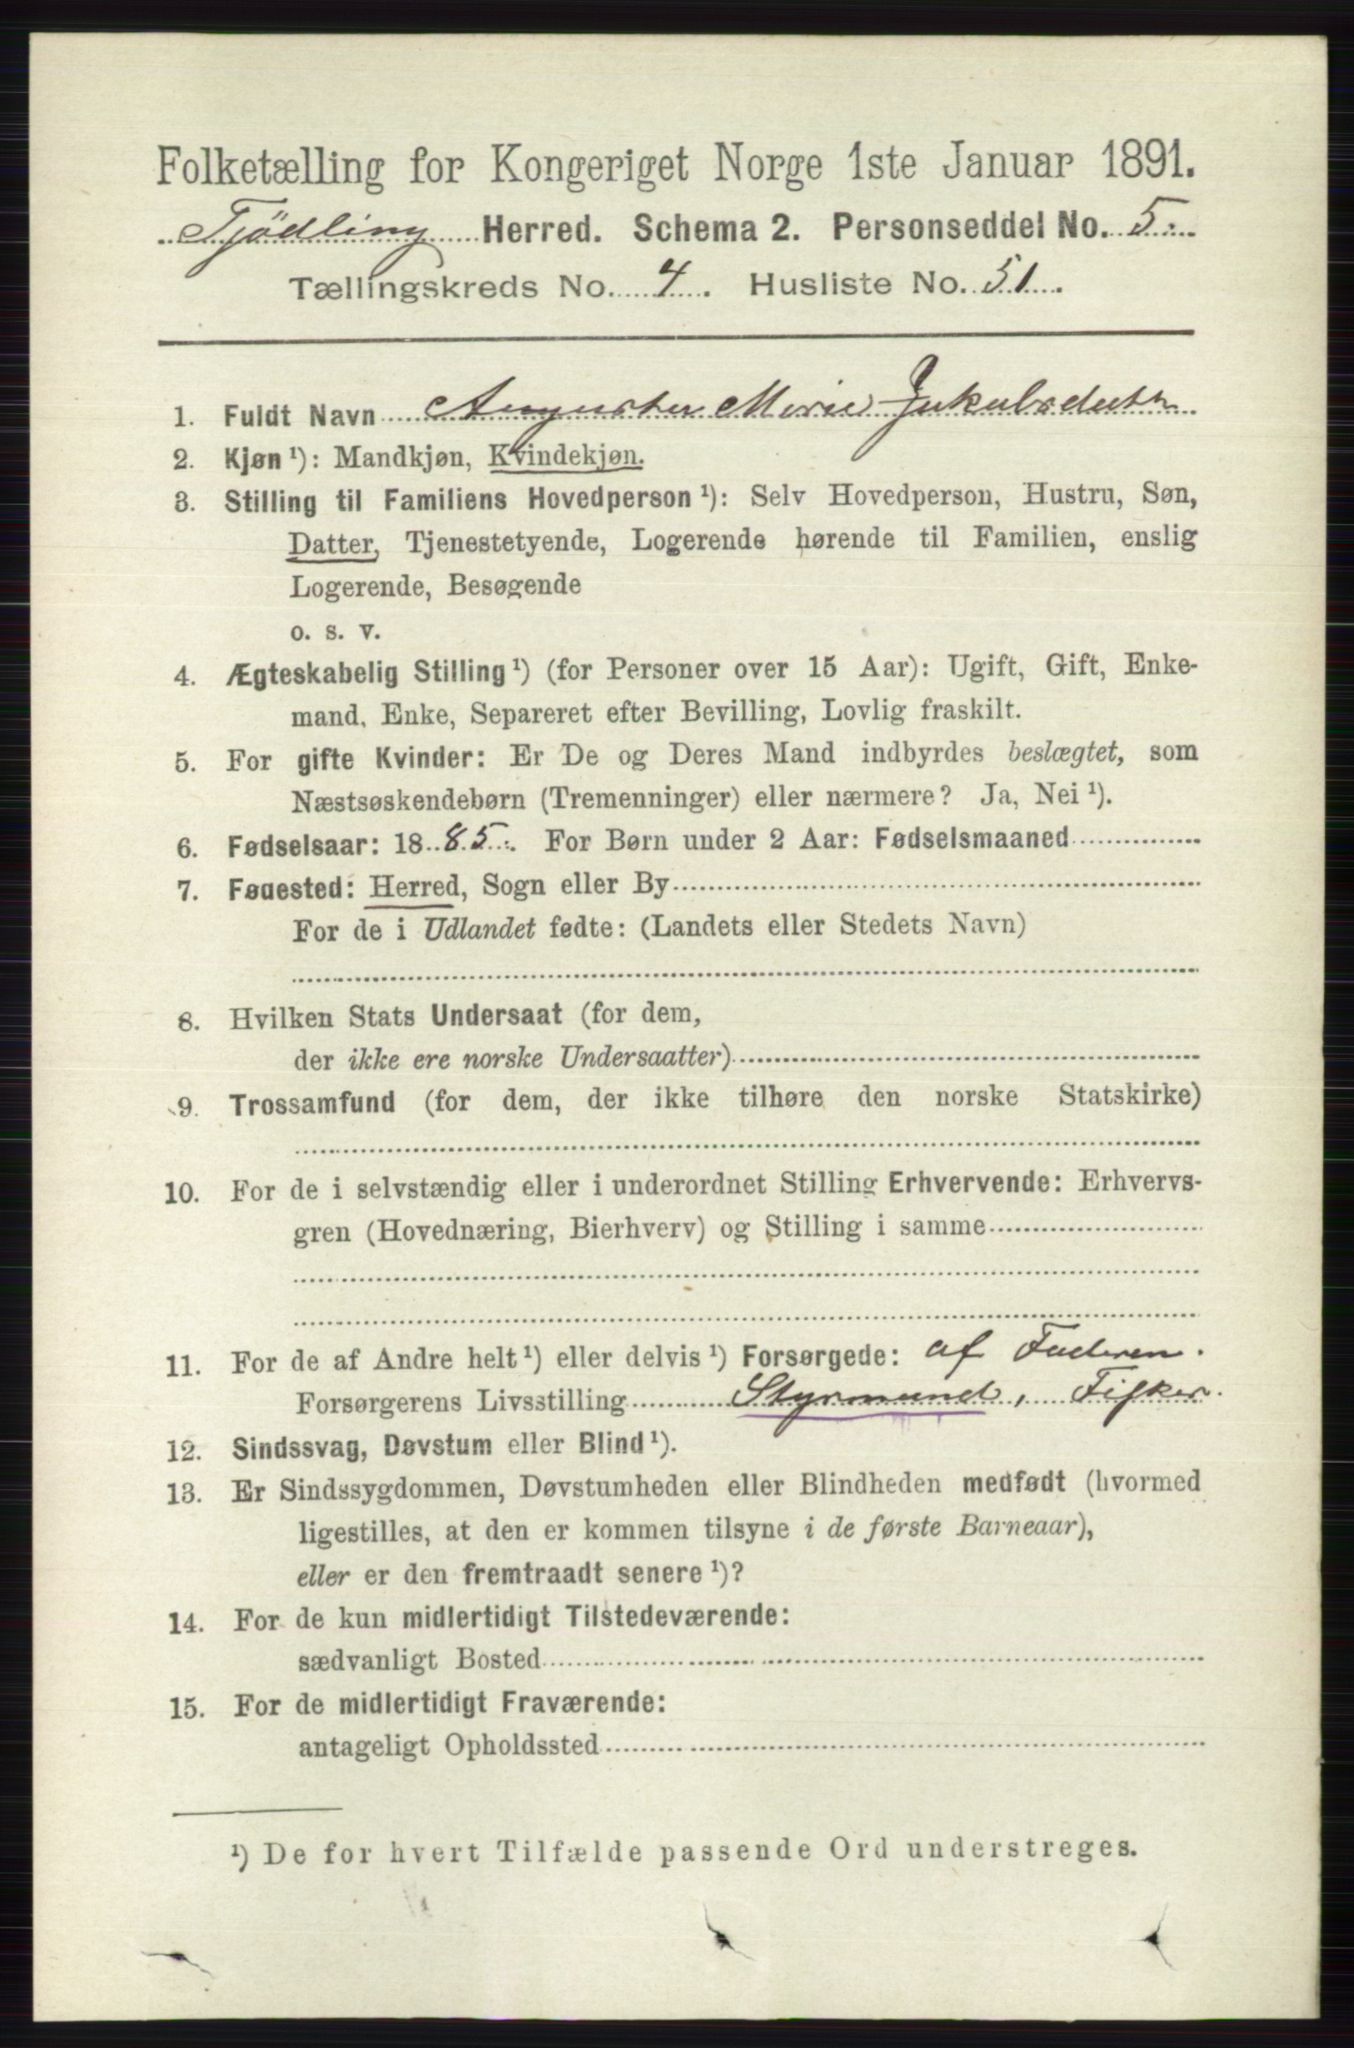 Folketælling for Kongeriget Norge 1ste Januar 1891.
Tjødling Herred. Schema 2. Personseddel No. 5.
Tællingskreds No. 4. Husliste No. 51.
1. Fuldt Navn Augusta Marie Jakobsdatt
2. Kjøn ¹): Mandkjøn, Kvindekjøn.
3. Stilling til Familiens Hovedperson ¹): Selv Hovedperson, Hustru, Søn,
Datter, Tjenestetyende, Logerende hørende til Familien, enslig
Logerende, Besøgende
o. s. v.
4. Ægteskabelig Stilling ¹) (for Personer over 15 Aar): Ugift, Gift, Enke-
mand, Enke, Separeret efter Bevilling, Lovlig fraskilt.
5. For gifte Kvinder: Er De og Deres Mand indbyrdes beslægtet, som
Næstsøskendebørn (Tremenninger) eller nærmere? Ja, Nei ¹).
6. Fødselsaar: 1885. For Børn under 2 Aar: Fødselsmaaned
7. Fødested: Herred, Sogn eller By
For de i Udlandet fødte: (Landets eller Stedets Navn)
8. Hvilken Stats Undersaat (for dem,
der ikke ere norske Undersaatter)
9. Trossamfund (for dem, der ikke tilhøre den norske Statskirke)
10. For de i selvstændig eller i underordnet Stilling Erhvervende: Erhvervs-
gren (Hovednæring, Bierhverv) og Stilling i samme
11. For de af Andre helt ¹) eller delvis ¹) Forsørgede: af Faderen.
Forsørgerens Livsstilling Styrmand, Fisker.
12. Sindssvag, Døvstum eller Blind ¹).
13. Er Sindssygdommen, Døvstumheden eller Blindheden medfødt (hvormed
ligestilles, at den er kommen tilsyne i de første Barneaar),
eller er den fremtraadt senere ¹)?
14. For de kun midlertidigt Tilstedeværende:
sædvanligt Bosted
15. For de midlertidigt Fraværende:
antageligt Opholdssted
¹) De for hvert Tilfælde passende Ord understreges.